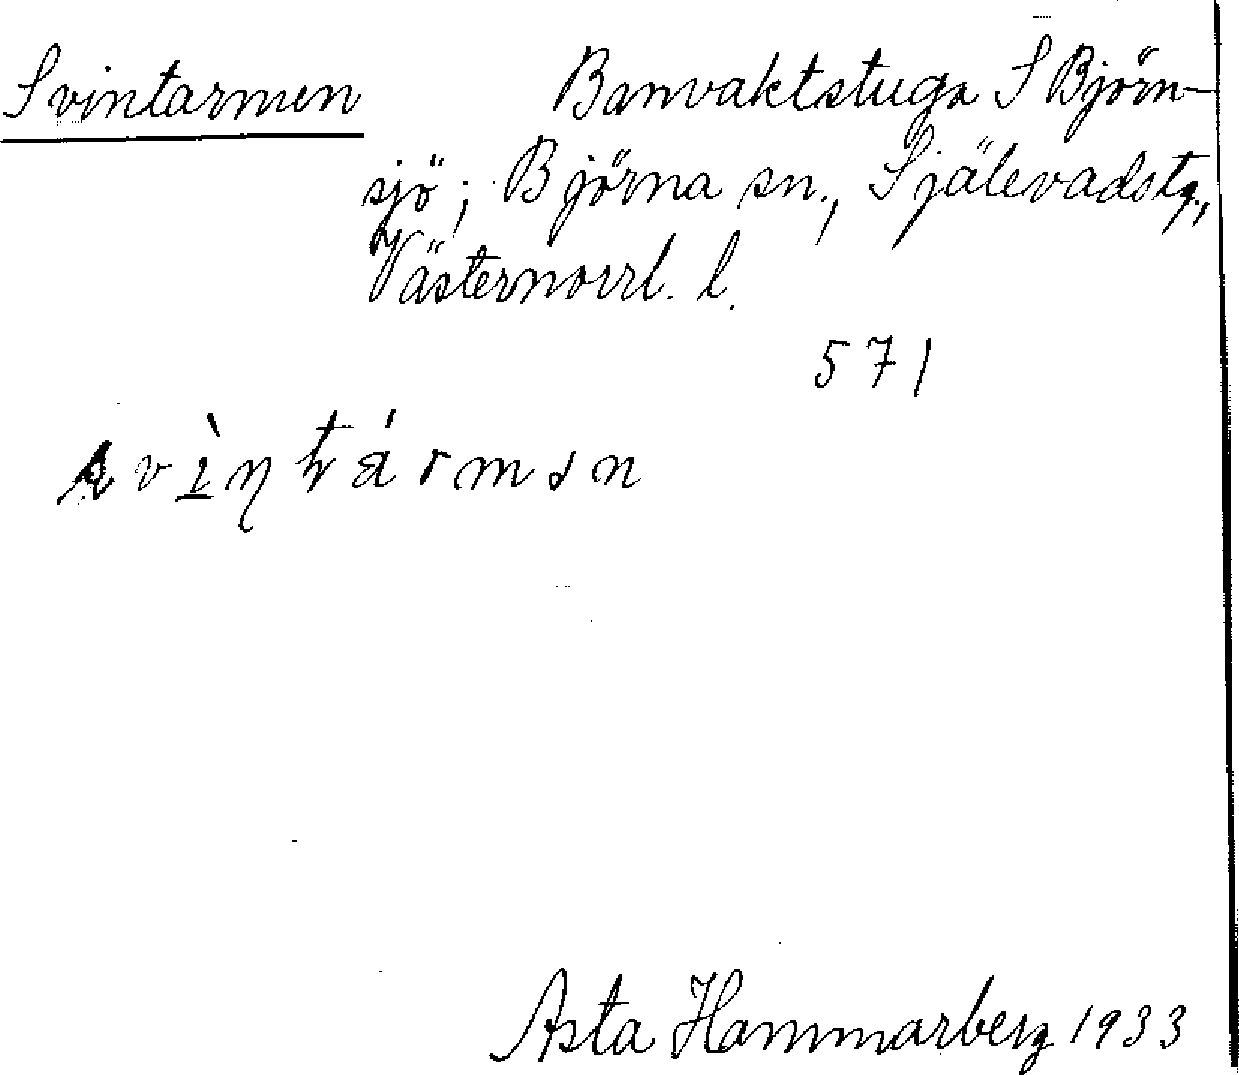 Svintarmen Banvaktstuga S Björn-
sjö; Björna sn., Själevadstg.,
Västernorrl. l.
571
svìntármən
Asta Hammarberg 1933